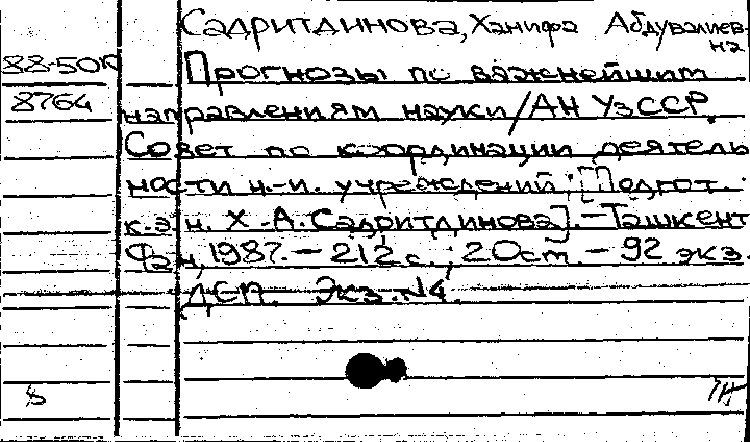 Садритдинова, Ханифа Абдувалиев-
на
88-50к
Прогнозы по важнейшим
8764
направлениям науки/АН УзССР.
Совет по координации деятель
ности н.-и. учреждений; [Подгот.
к.э.н. Х.-А. Садритдинова]. - Ташкент
Фан, 1987. - 212 с.; 20 см. - 92 экз.
ДСП. Экз. №4.